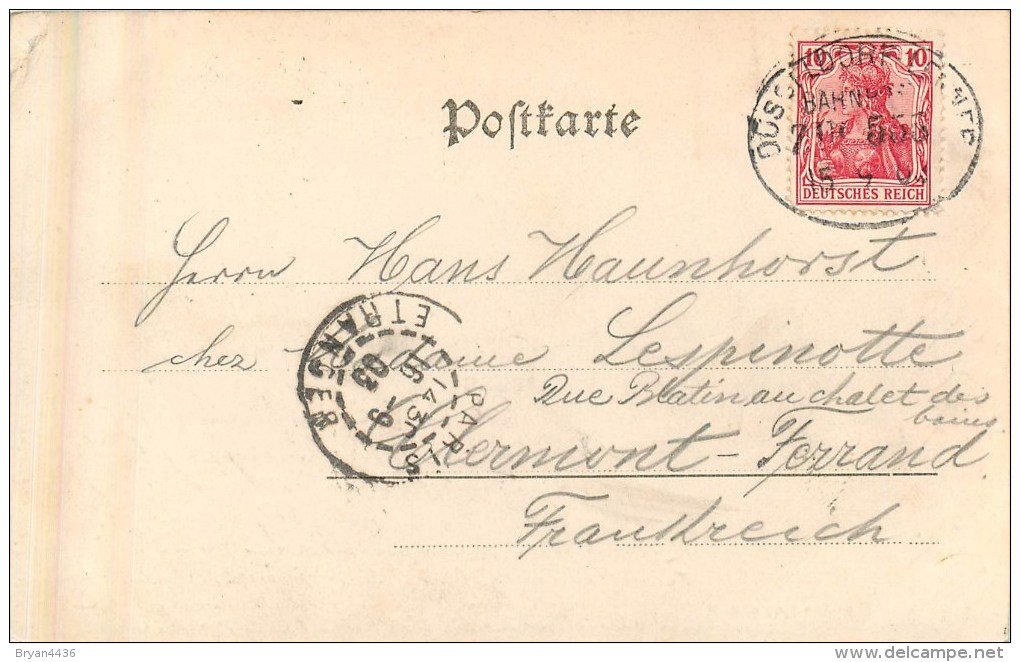 Postkarte
10 10
DEUTSCHES REICH
DÜSSELDORF
BAHNPOST
ZUG 556
15 9 03
Herrn Hans Haunhorst
chez Madame Lespinotte
Rue Blatin au chalet des
bains
Clermont-Ferrand
Frankreich
PARIS ETRANGER
16 9
03
Bryan4436
delcampe.net